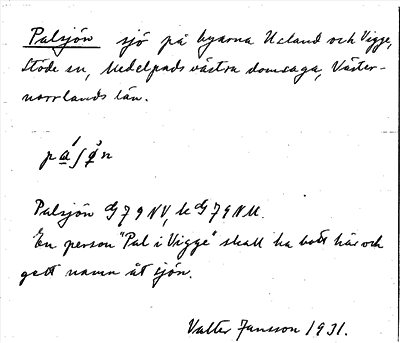 Palsjön sjö på byarna Ucland och Vigge,
Stöde sn, Medelpads västra domsaga, Väster-
norrlands län.
Palsjön G79NV, k G79NU.
En person "Pal i Vigge" skall ha bott här och
gett namn åt sjön.
Valter Jansson 1931.